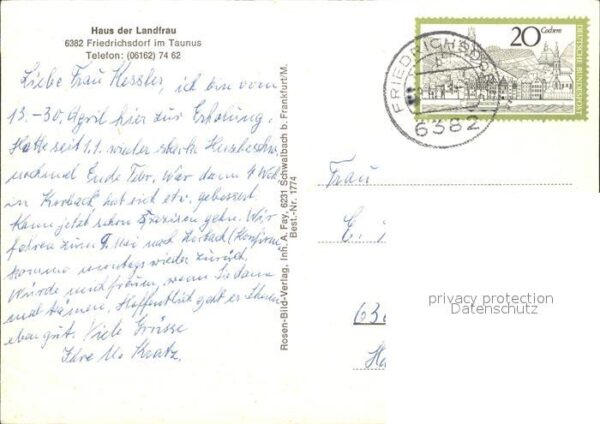 Haus der Landfrau
6382 Friedrichsdorf im Taunus
Telefon: (06162) 74 62
Liebe Frau Kessler, ich bin vom
13.-30. April hier zur Erholung.
Hatte seit 1.1. wieder starke Herzbeschw.
nochmal Ende Febr. War dann 4 Woh
in Korbach, hat sich etw. gebessert.
Kann jetzt schon spazieren gehn. Wir
fahren zum 7. Mai nach Korbach (Konfirm.
komme montags wieder zurück.
Würde mich freuen, wenn Sie dann
mal kämen. Hoffentlich geht es Ihnen
eben gut. Viele Grüsse
Ihre M. Kratz.
Rosen-Bild-Verlag, Inh. A. Fay, 6231 Schwalbach b. Frankfurt/M.
Best.-Nr. 1774
20 Cochem
DEUTSCHE BUNDESPOST
FRIEDRICHSDORF
6382
Frau
E.
privacy protection
Datenschutz